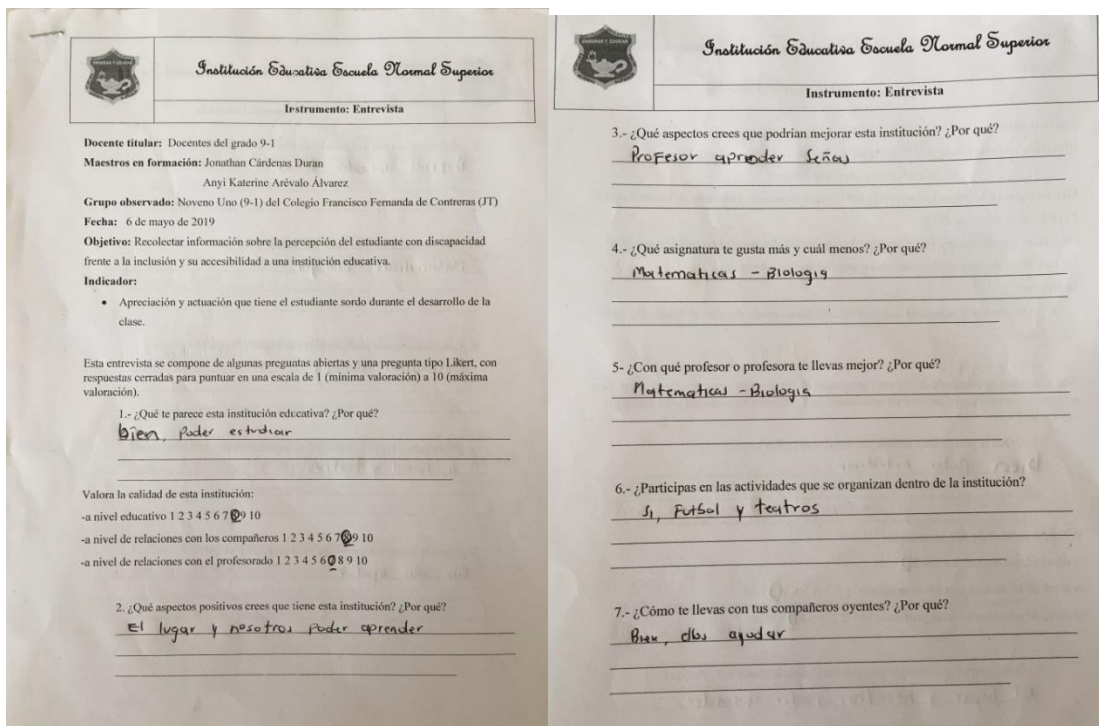 ENSEÑAR Y EDUCAR
Institución Educativa Escuela Normal Superior
Instrumento: Entrevista
Docente titular: Docentes del grado 9-1
Maestros en formación: Jonathan Cárdenas Duran
Anyi Katerine Arévalo Álvarez
Grupo observado: Noveno Uno (9-1) del Colegio Francisco Fernanda de Contreras (JT)
Fecha: 6 de mayo de 2019
Objetivo: Recolectar información sobre la percepción del estudiante con discapacidad
frente a la inclusión y su accesibilidad a una institución educativa.
Indicador:
• Apreciación y actuación que tiene el estudiante sordo durante el desarrollo de la
clase.
Esta entrevista se compone de algunas preguntas abiertas y una pregunta tipo Likert, con
respuestas cerradas para puntuar en una escala de 1 (mínima valoración) a 10 (máxima
valoración).
1.- ¿Qué te parece esta institución educativa? ¿Por qué?
bien, Poder estudiar
Valora la calidad de esta institución:
-a nivel educativo 1 2 3 4 5 6 7 8 9 10
-a nivel de relaciones con los compañeros 1 2 3 4 5 6 7 8 9 10
-a nivel de relaciones con el profesorado 1 2 3 4 5 6 7 8 9 10
2. ¿Qué aspectos positivos crees que tiene esta institución? ¿Por qué?
El lugar y nosotros poder aprender
Institución Educativa Escuela Normal Superior
Instrumento: Entrevista
3.- ¿Qué aspectos crees que podrían mejorar esta institución? ¿Por qué?
Profesor aprender Señas
4.- ¿Qué asignatura te gusta más y cuál menos? ¿Por qué?
Matematicas - Biologia
5- ¿Con qué profesor o profesora te llevas mejor? ¿Por qué?
Matematicas - Biologia
6.- ¿Participas en las actividades que se organizan dentro de la institución?
Si, Futbol y teatros
7.- ¿Cómo te llevas con tus compañeros oyentes? ¿Por qué?
Bien, ellos ayudar